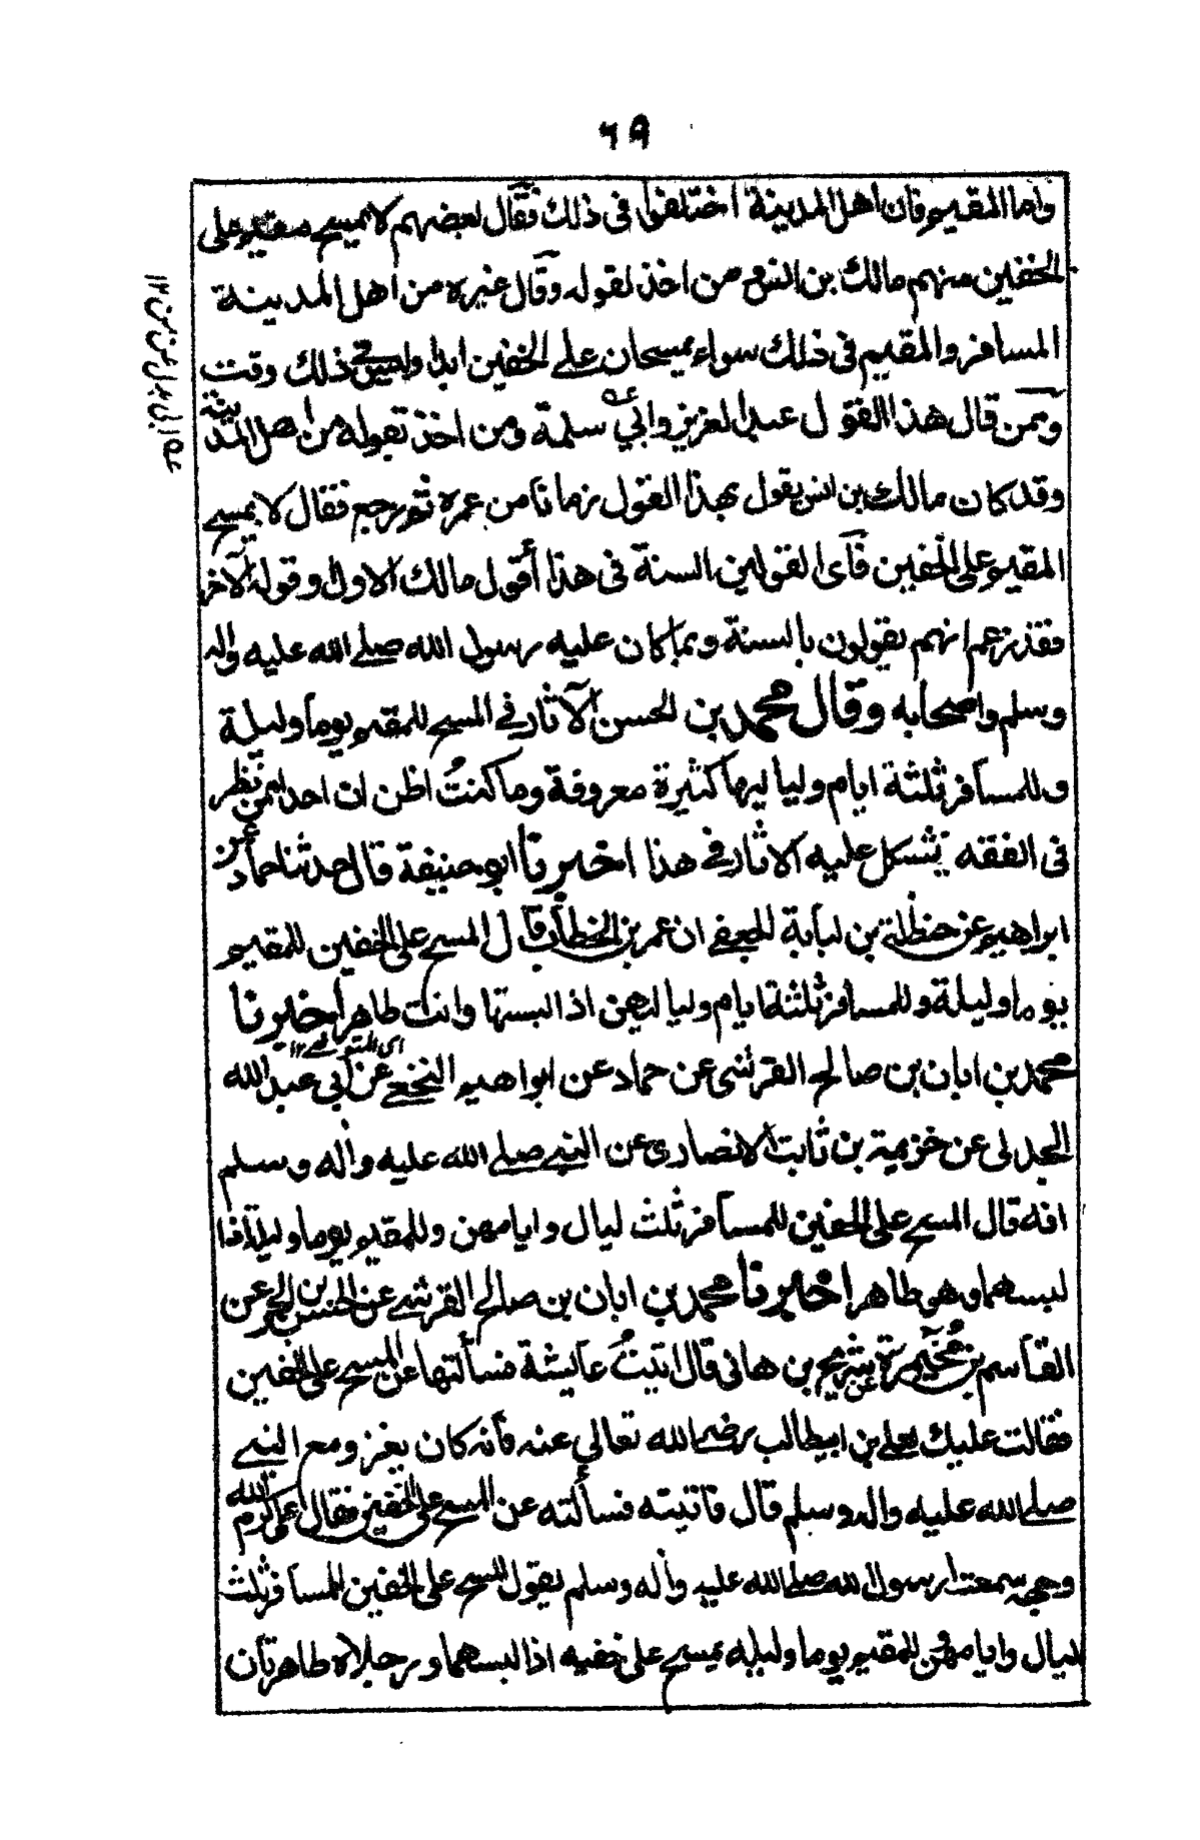 ٦٩
واما المقيم فان اهل المدينة اختلفوا فى ذلك فقال بعضهم لا يمسح مقيم على
الخفين منهم مالك بن انس ومن اخذ لقوله وقال غيره من اهل المدينة
المسافر والمقيم فى ذلك سواء يمسحان على الخفين ابدا وليس فى ذلك وقت
وممن قال هذا القول عبد العزيز وابي سلمة ومن اخذ بقوله من اهل المدينة
وقد كان مالك بن انس يقول بهذا القول زمانا من عمره ثم رجع فقال لا يمسح
المقيم على الخفين فأى القولين السنة فى هذا أقول مالك الاول وقوله الآخر
فقد زعم انهم يقولون بالسنة وبما كان عليه رسول الله صلى الله عليه واله
وسلم واصحابه وقال محمد بن الحسن الآثار في المسح للمقيم يوما وليلة
وللمسافر ثلثة ايام ولياليها كثيرة معروفة وما كنتُ اظن ان احدا ممن نظر
فى الفقه يشكل عليه الاثار في هذا اخبرنا ابو حنيفة قال حدثنا حماد عن
ابراهيم عن حنظلة بن نباتة الجعفي ان عمر بن الخطاب قال المسح على الخفين للمقيم
يوما وليلة وللمسافر ثلثة ايام ولياليهن اذا لبستها وانت طاهر اخبرنا
اى المتوضى ١٢
محمد بن ابان بن صالح القرشى عن حماد عن ابراهيم النخعي عن أبي عبد الله
الجدلى عن خزيمة بن ثابت الانصارى عن النبي صلى الله عليه وأله وسلم
انه قال المسح على الخفين للمسافر ثلث ليال وايامهن وللمقيم يوما وليلة اذا
لبسهما وهو طاهر اخبرنا محمد بن ابان بن صالح القرشي عن الحسن بن الحر عن
القاسم بن مُخَيمرة عن شريح بن هانى قال اتيتُ عايشة فسألتها عن المسح على الخفين
فقالت عليك بعلي بن ابيطالب رضى الله تعالى عنه فأنه كان يغزو مع النبي
صلى الله عليه واله وسلم قال فاتيته فسألته عن المسح على الخفين فقال على كرم الله
وجهه سمعت رسول الله صلى الله عليه وأله وسلم يقول المسح على الخفين للمسافر ثلث
ليال وايامهن وللمقيم يوما وليلة يمسح على خفيه اذا لبسهما ورجلاه طاهرتان